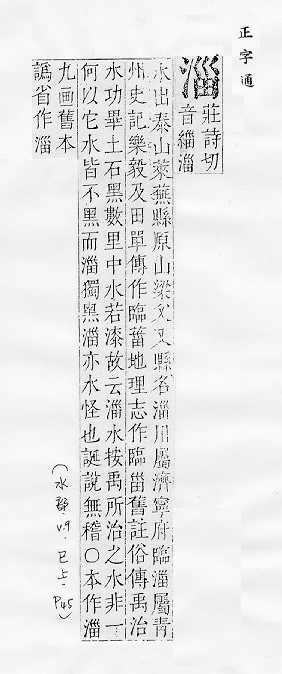 正字通
淄
莊詩切
音緇淄
水出泰山萊蕪縣原山又縣名淄川屬濟寧府臨淄屬青
州史記樂毅及田單傳作臨菑地理志作臨甾舊註俗傳禹治
水功畢土石黑數里中水若漆故云淄水按禹所治之水非一
何以它水皆不黑而淄獨黑淄亦水怪也誕說無稽○本作淄
九画舊本
譌省作淄
(水部.V.9.巳上.P45)